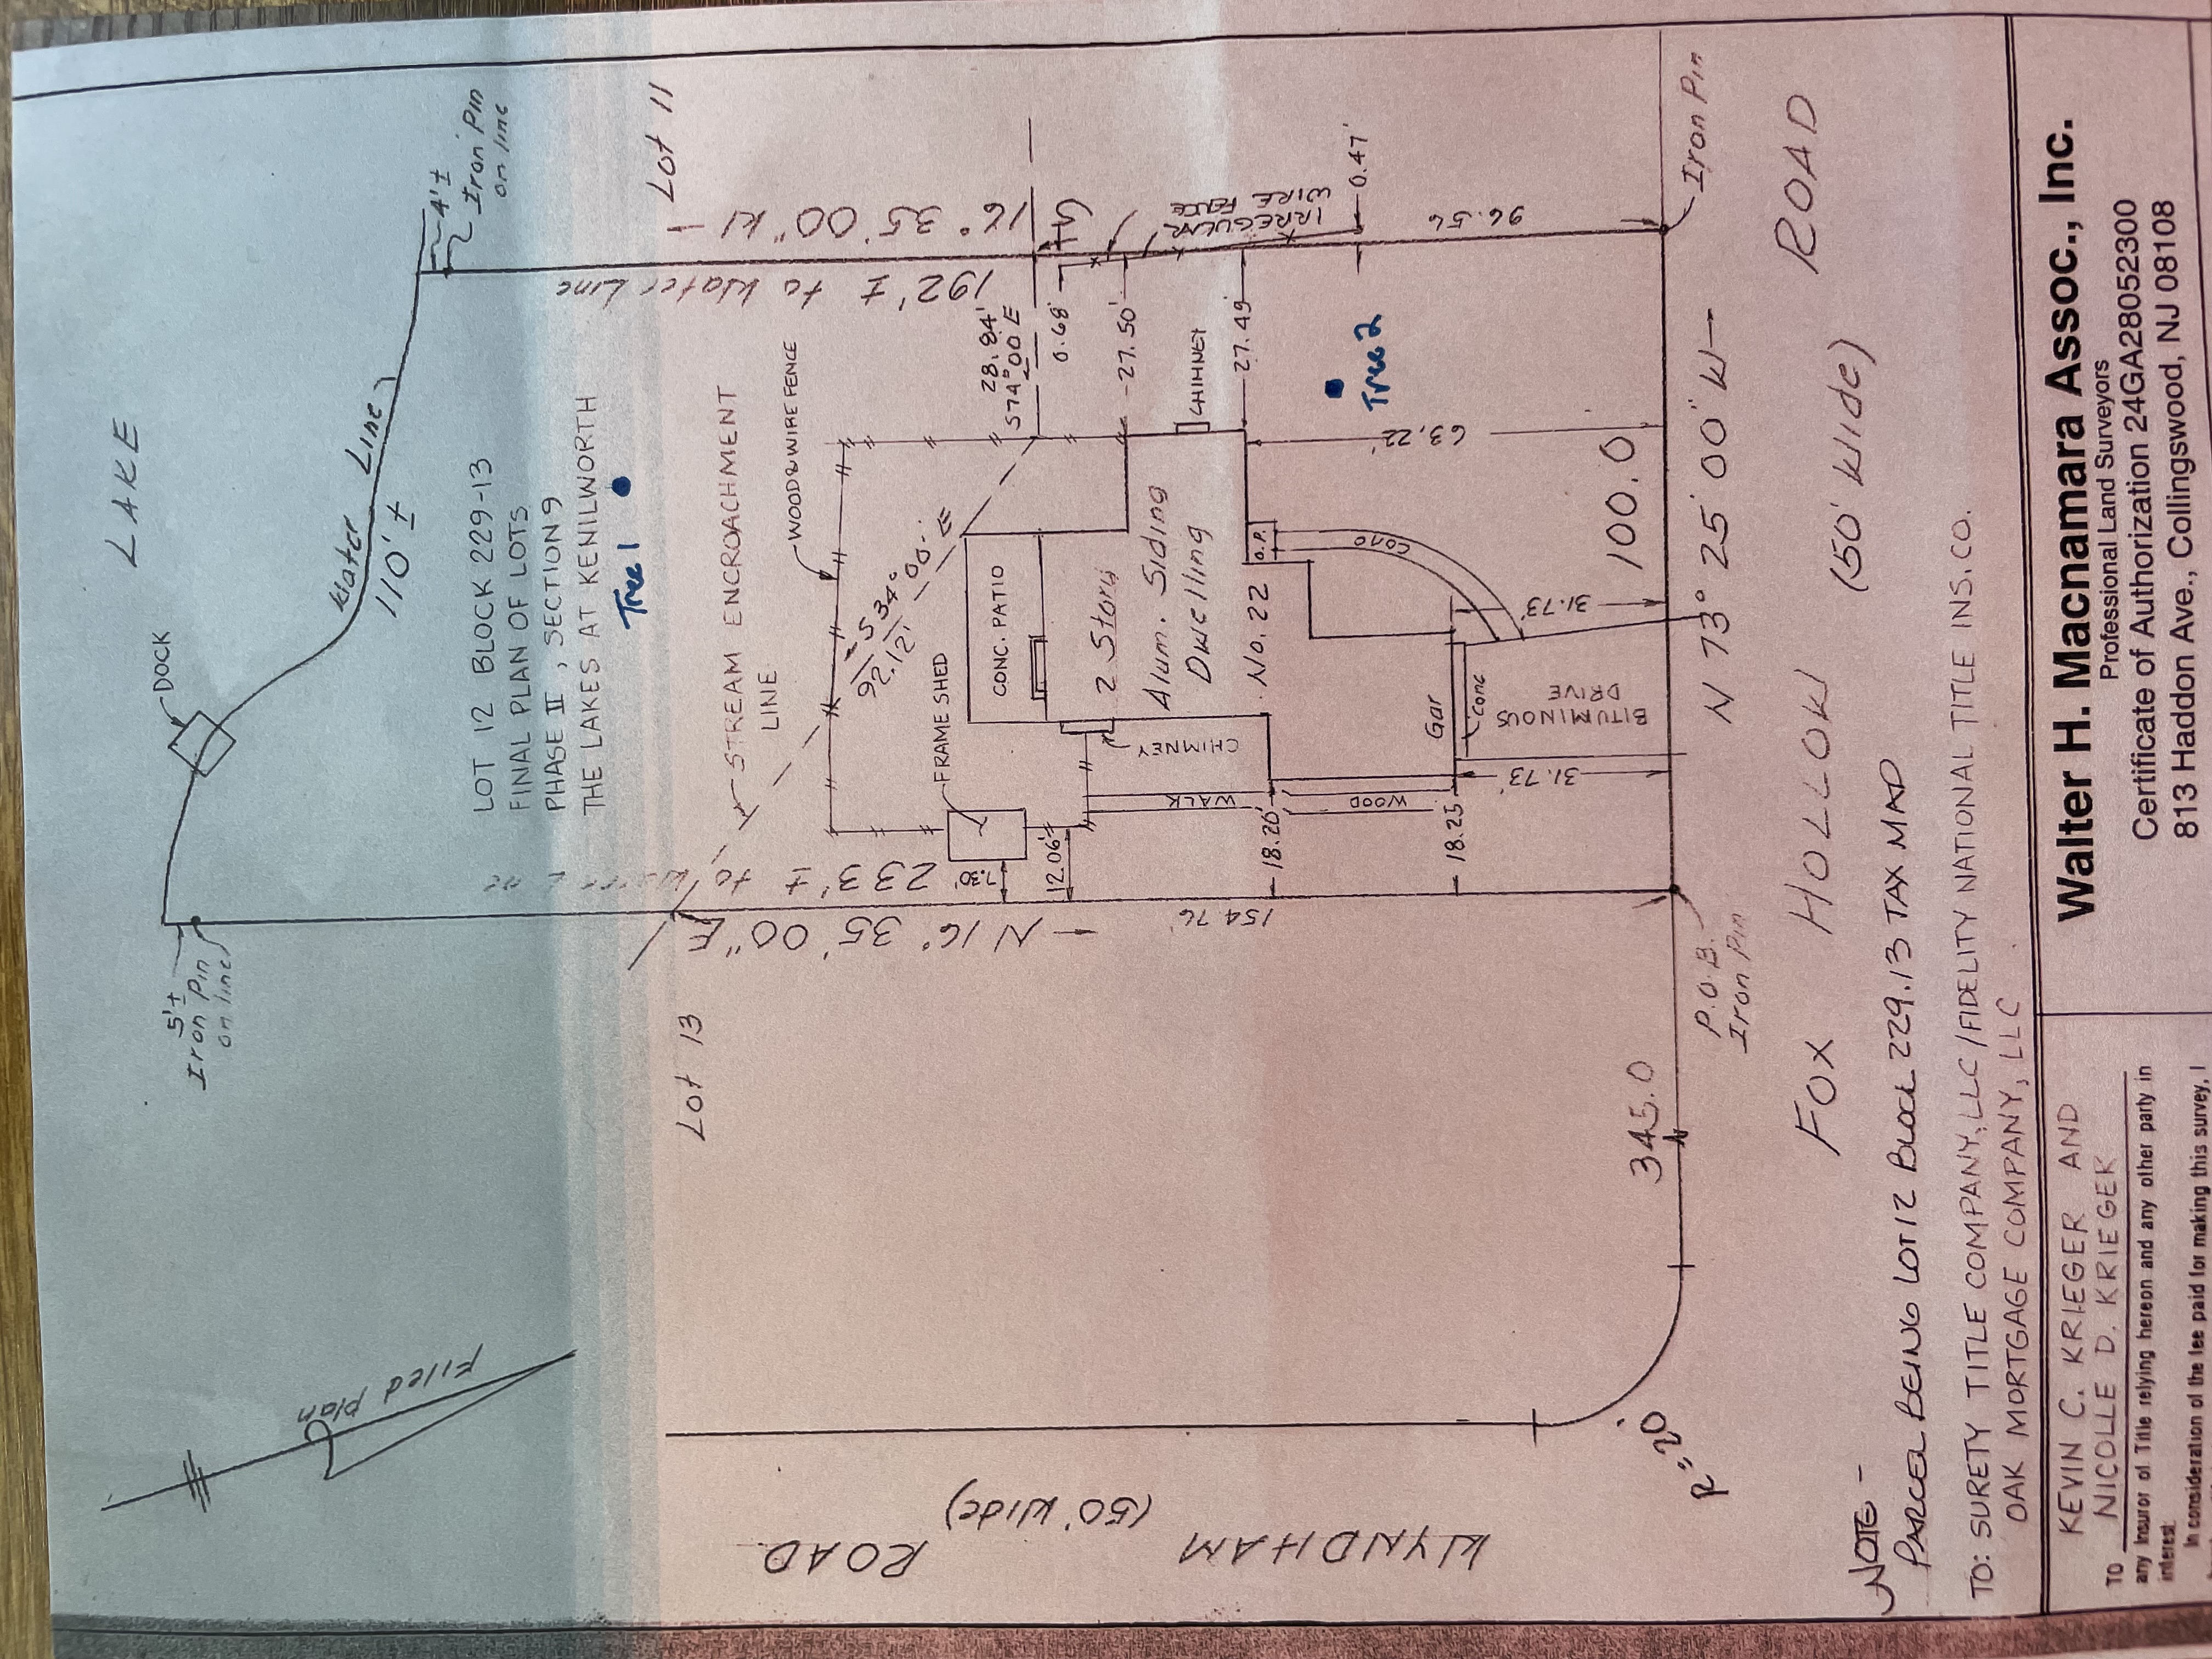 LAKE
DOCK
Water Line
110'±
4'±
Iron Pin
on line
5'±
Iron Pin
on line
LOT 12 BLOCK 229-13
FINAL PLAN OF LOTS
PHASE II, SECTION 9
THE LAKES AT KENILWORTH
Tree 1
Lot 11
Lot 13
Filed Plan
STREAM ENCROACHMENT
LINE
WOOD & WIRE FENCE
192'± to Water Line
16° 35' 00" W
N 16° 35' 00" E
233'± to Water Line
S 34°
92.12'
28.84'
S74° 00 E
0.68'
27.50'
CHIMNEY
27.49'
IRREGULAR
WIRE FENCE
0.47'
96.56
FRAME SHED
CONC. PATIO
7.30'
12.06'
2 Story
Alum. Siding
Dwelling
No. 22
CHIMNEY
WALK
WOOD
O.P.
CONC
Tree 2
63.22
18.26'
18.25'
154.76
Gar
Conc
BITUMINOUS
DRIVE
31.73'
31.73'
100.0
N 73° 25' 00" W
Iron Pin
P.O.B.
Iron Pin
345.0
R=20'
FOX HOLLOW ROAD
(50' Wide)
WYNDHAM ROAD
(50' Wide)
NOTE -
PARCEL BEING LOT 12 BLOCK 229.13 TAX MAP
TO: SURETY TITLE COMPANY, LLC/FIDELITY NATIONAL TITLE INS. CO.
OAK MORTGAGE COMPANY, LLC
KEVIN C. KRIEGER AND
TO NICOLLE D. KRIEGER
any Insuror of Title relying hereon and any other party in
interest
In consideration of the fee paid for making this survey, I
Walter H. Macnamara Assoc., Inc.
Professional Land Surveyors
Certificate of Authorization 24GA28052300
813 Haddon Ave., Collingswood, NJ 08108